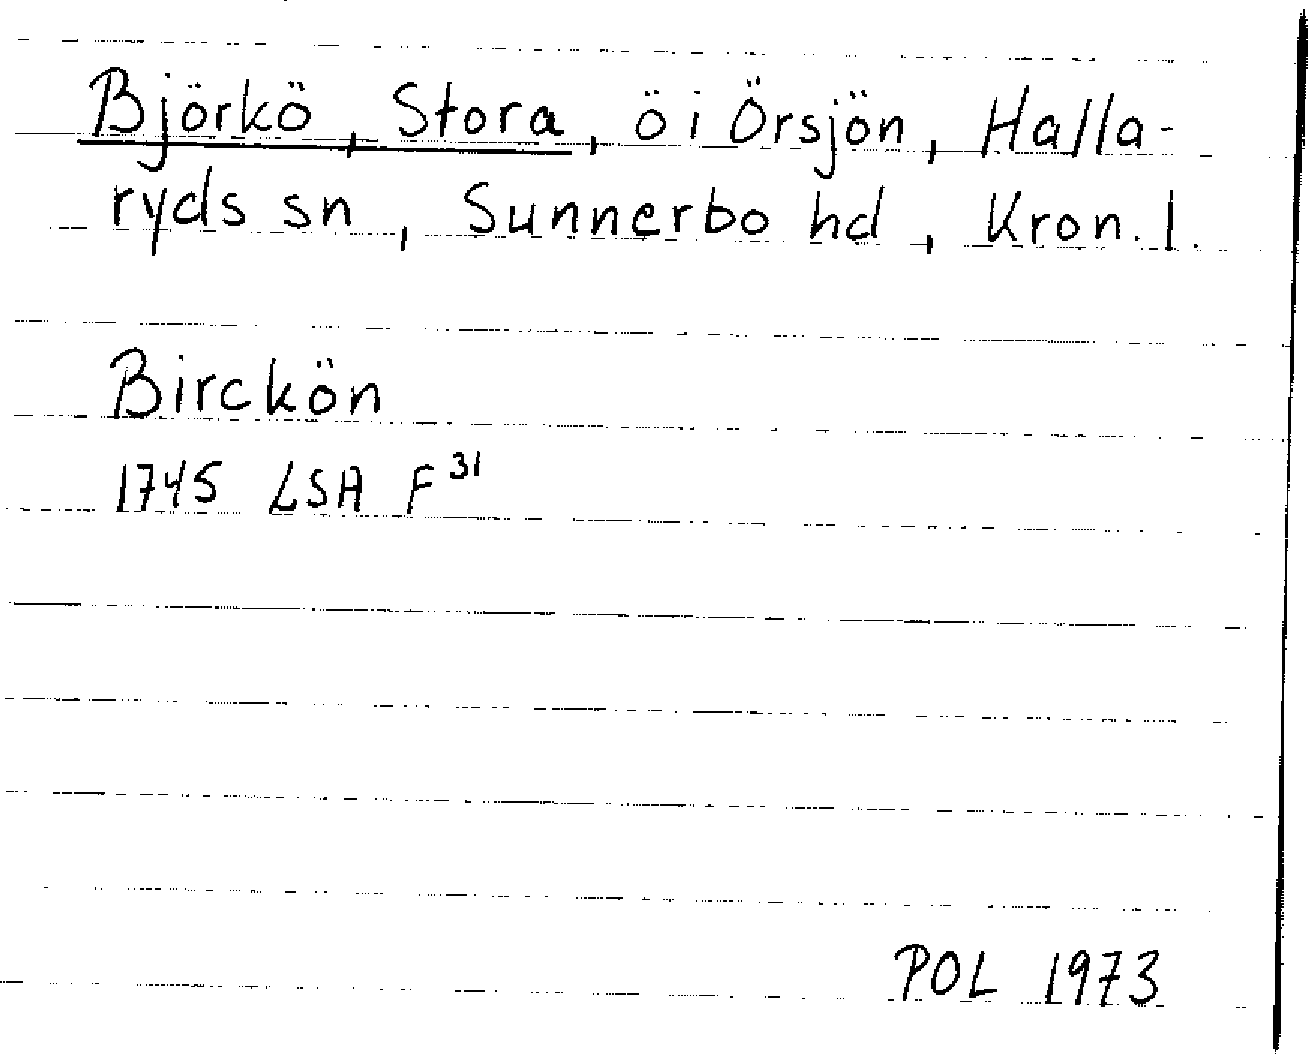 Björkö, Stora, ö i Örsjön, Halla-
ryds sn, Sunnerbo hd, Kron. l.
Birckön
1745 LSA F 31
POL 1973